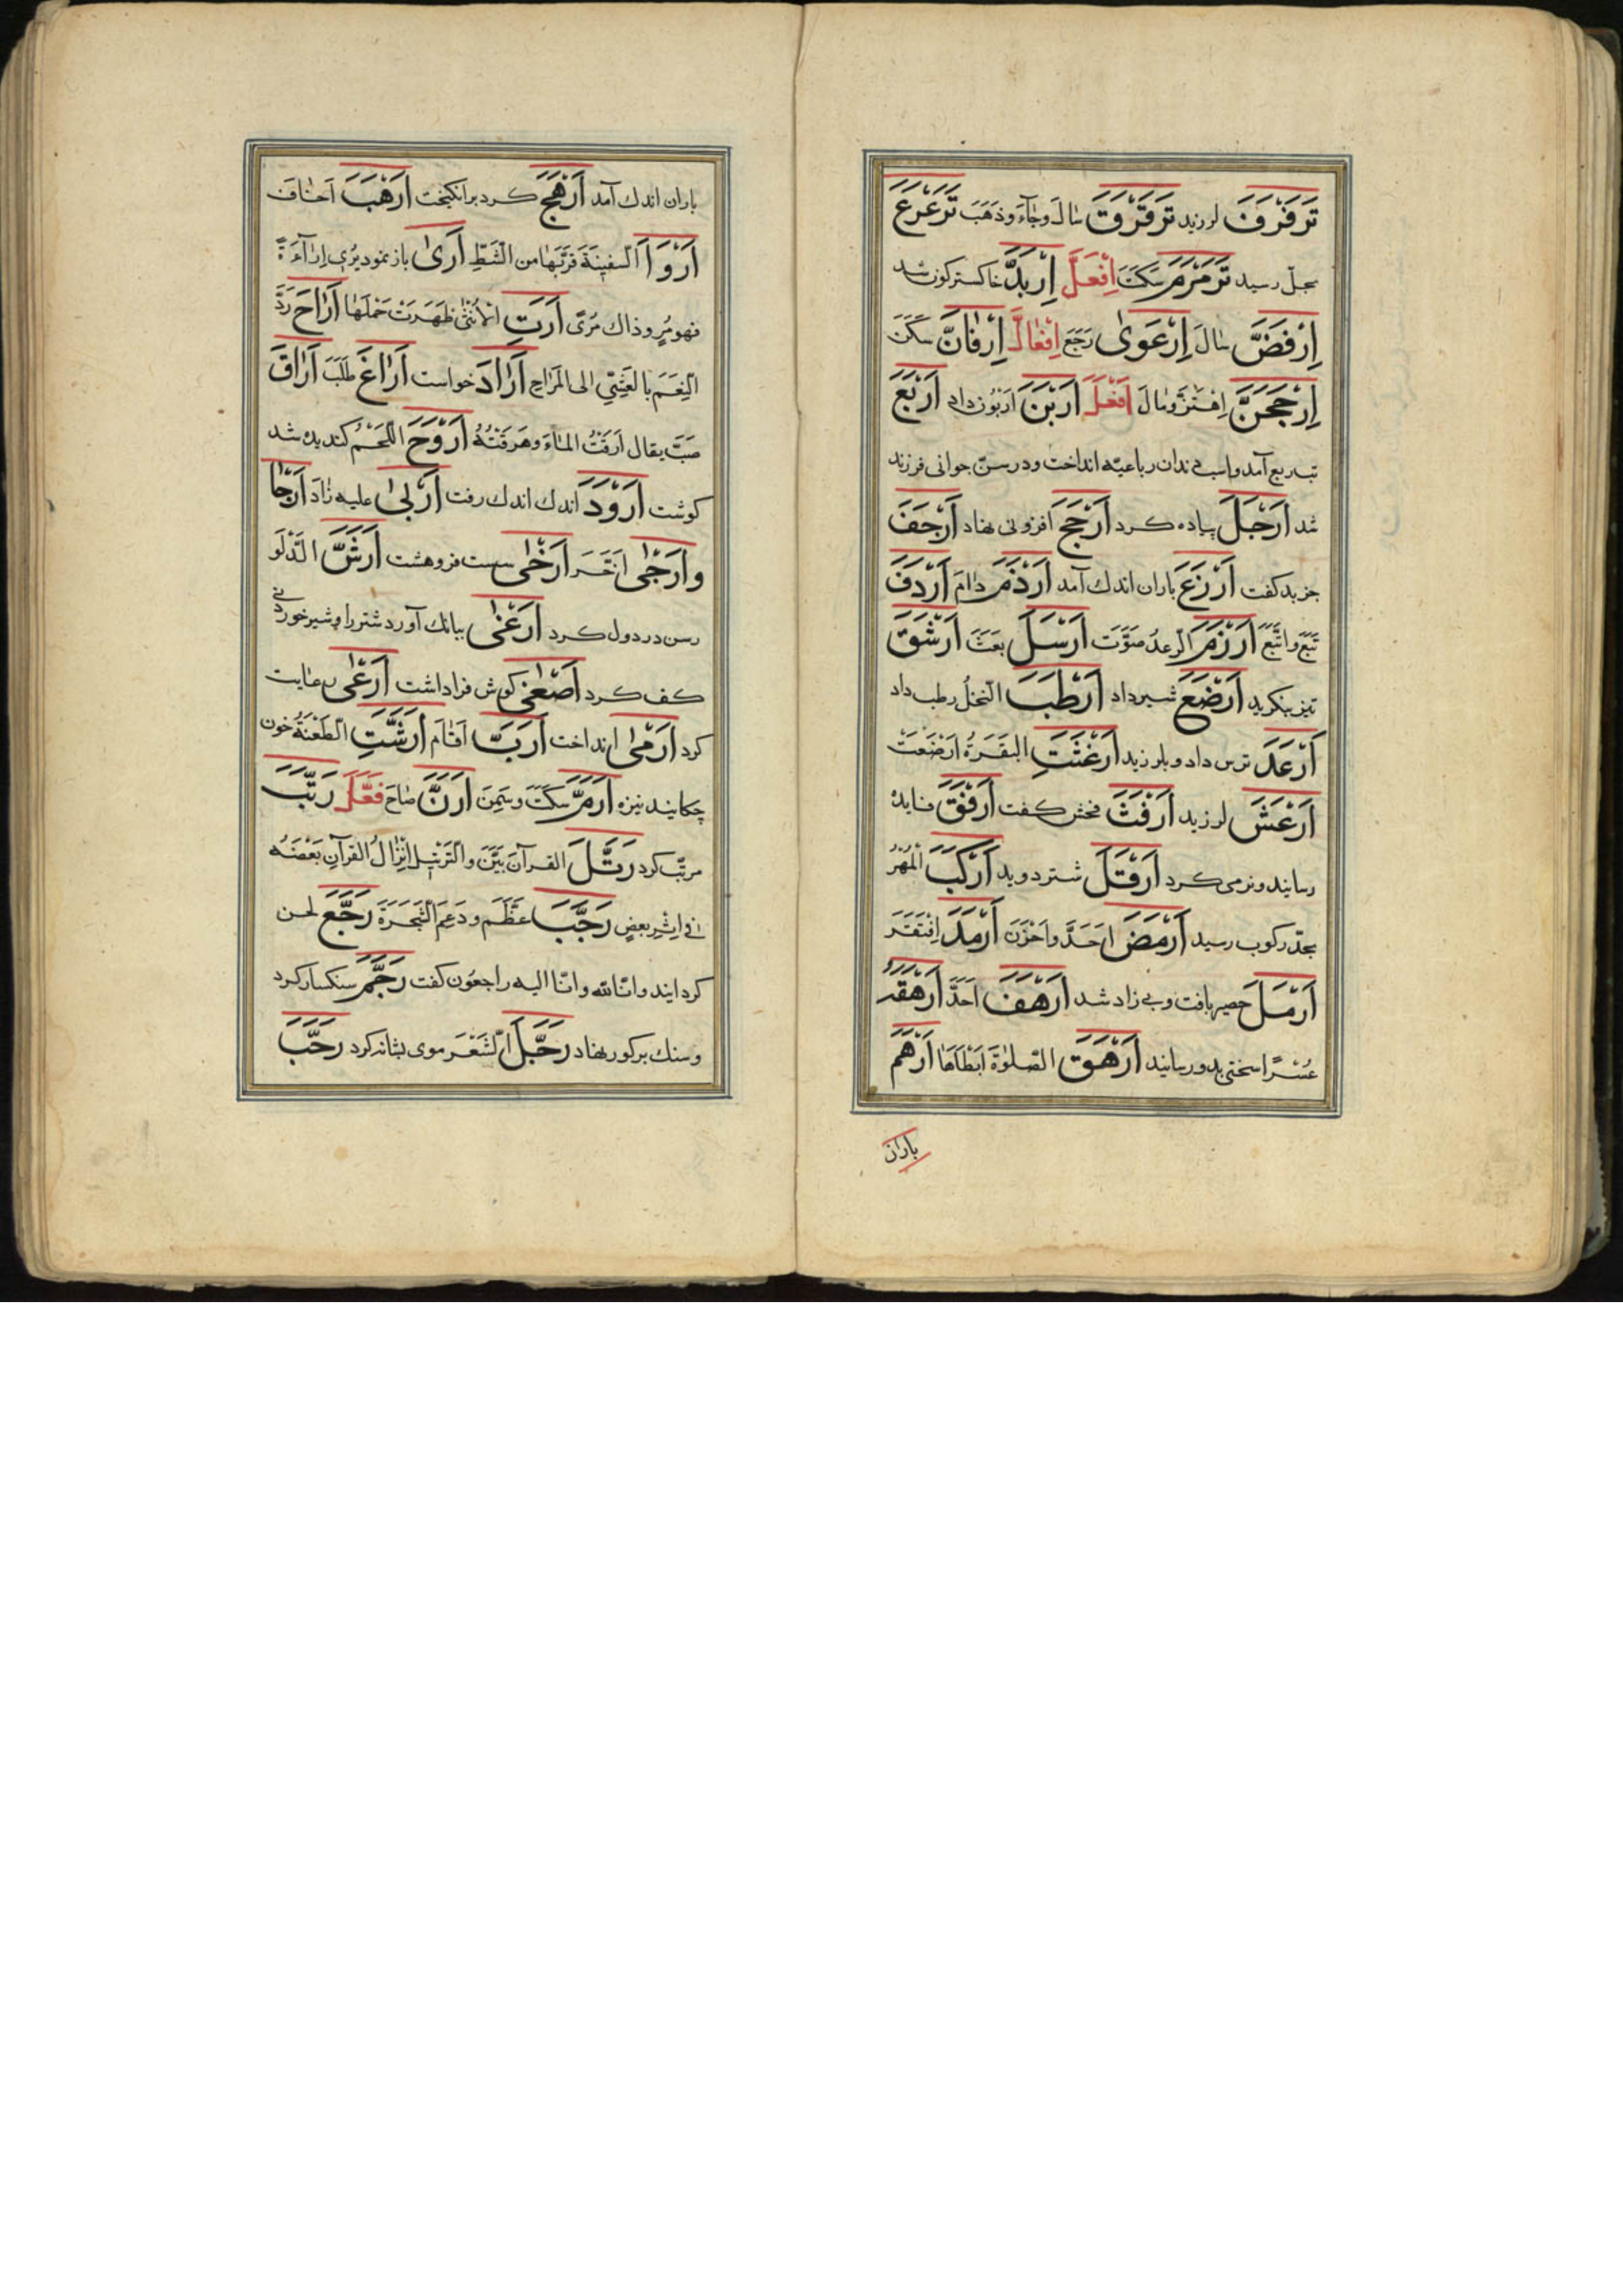 تَرَفْرَفَ لرزید تَرَقْرَقَ سَالَ وجَآءَ وذَهَبَ تَرَعْرَعَ
بحلّ رسید تَرَمْرَمَ سَكَتَ اِفْعَلَّ اِرْبَدَّ خاکسترکون شد
اِرْفَضَّ سَالَ اِرْعَوىٰ رَجَعَ اِفْعَالَّ اِرْفَانَّ سَكَنَ
اِرْجَحَنَّ اِهْتَزَّ ومَالَ اَفْعَلَ اَرْبَنَ اَرَبُون داد اَرْبَعَ
تب ربع آمد واسب دندان رباعیّه انداخت ودر سنّ جوانی فرزند
شد اَرْجَلَ پیاده کرد اَرْجَحَ افزونی نهاد اَرْجَفَ
خبر بد کفت اَرْزَغَ باران اندك آمد اَرْذَمَ دَامَ اَرْدَفَ
تَبِعَ واَتْبَعَ اَرْزَمَ الرعدُ صَوَّتَ اَرْسَلَ بَعَثَ اَرْشَقَ
تیز بنکرید اَرْضَعَ شیر داد اَرْطَبَ النخلُ رطب داد
اَرْعَدَ ترس داد وبلرزید اَرْغَثَتِ البَقَرَةُ اَرْضَعَتْ
اَرْعَشَ لرزید اَرْفَثَ فحش کفت اَرْفَقَ فایده
رسانید ونرمی کرد اَرْقَلَ شتر دوید اَرْكَبَ المُهْرُ
بحدّ رکوب رسید اَرْمَضَ اَحَدَّ واَحْزَنَ اَرْمَدَ اِفْتَقَرَ
اَرْمَلَ حصیر بافت وبی زاد شد اَرْهَفَ اَحَدَّ اَرْهَقَهُ
عُسْرًا سختی بدو رسانید اَرْهَقَ الصّلوٰةَ اَبْطَاَهَا اَرْهَمَ
باران
باران اندك آمد اَرْهَجَ کرد برانکیخت اَرْهَبَ اَخَافَ
اَرْوَاَ السفینةَ قَرَّبَهَا من الشَّطِّ اَرىٰ باز نمود یُرِی اِرَآءَةً
فهو مُرٍ وذاك مُرًى اَرَتِ الاُنْثىٰ ظَهَرَتْ حَمْلَهَا اَرَاحَ رَدَّ
النِعَمَ بالعَشِيِّ الى المَرَاحِ اَرَادَ خواست اَرَاغَ طَلَبَ اَرَاقَ
صَبَّ یقال اَرَقْتُ المَاءَ وهَرَقْتُهُ اَرْوَحَ اللَّحْمُ کندیده شد
کوشت اَرْوَدَ اندك اندك رفت اَرْبىٰ علیه زَادَ اَرْجَا
واَرْجىٰ اَخَّرَ اَرْخىٰ سست فروهشت اَرَشَّ الدَّلْوَ
رسن در دول کرد اَرْغىٰ ببانك آورد شتر را وشیر خوردنی
کف کرد اَصْغىٰ کوش فراداشت اَرْعىٰ رعایت
کرد اَرْمىٰ انداخت اَرَبَّ اَقَامَ اَرَشَّتِ الطَعْنَةُ خون
چکانید نیزه اَرَمَّ سَكَتَ وسَمِنَ اَرَنَّ صَاحَ فَعَّلَ رَتَّبَ
مرتّب کرد رَتَّلَ القرآنَ بَیَّنَ والتَرْتِیل اِنْزَالُ القرآنِ بَعْضَهُ
فی اِثْرِ بعضٍ رَجَّبَ عَظَّمَ ودَعَمَ الشَجَرَةَ رَجَّعَ لحن
کردانید وانّا لله وانّا الیه راجعون کفت رَجَّمَ سنکسار کرد
وسنك بر کور نهاد رَجَّلَ الشَعْرَ موی بشانه کرد رَحَّبَ